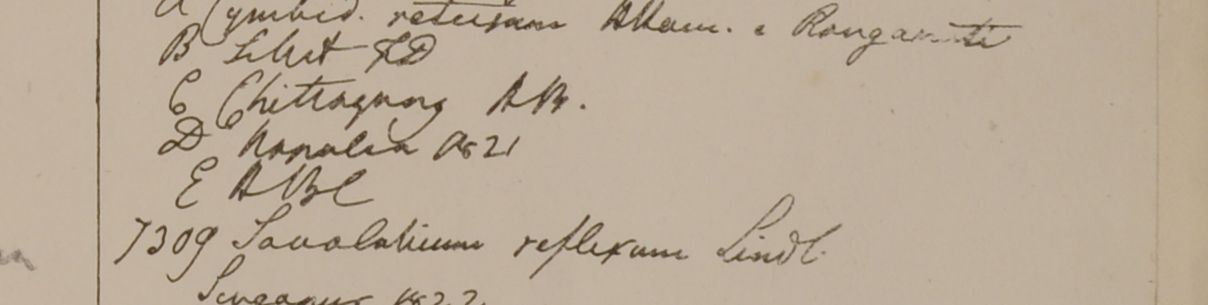 A Cymbid. retusum Ham. e Rongamati
B Silhet FD
C Chittagong HB.
D Napalia 1821
E HBC
7309 Saccolabium reflexum Lindl.
Singapur 1822